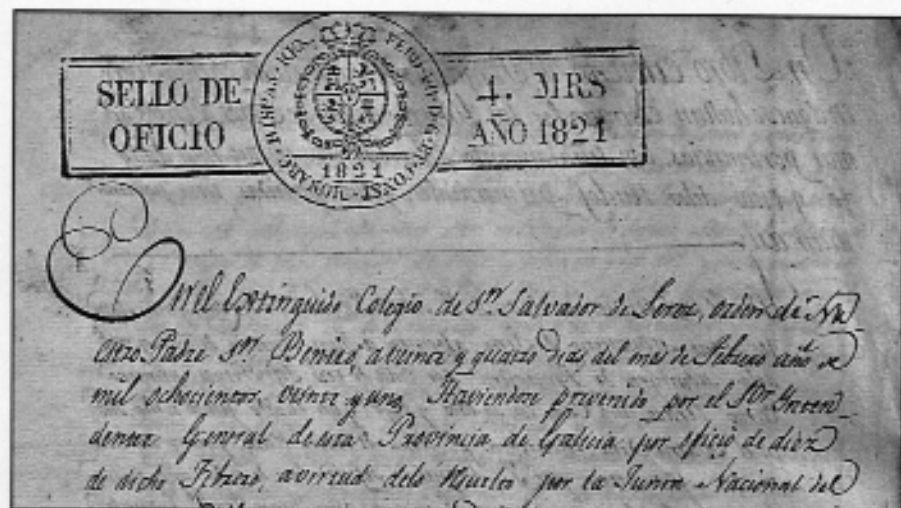 SELLO DE
OFICIO
HISPAN. REX. FERD. VII. D. G. ET CONST. MONARC.
1821
4. MRS
AÑO 1821
En el Extinguido Colegio de Sn. Salvador de Lerez, orden de Nu
estro Padre Sn. Benito, a veinte y quatro dias del mes de Febrero año de
mil ochocientos, veinte y uno, Haviendose prevenido por el Sor. Inten
dente General de esta Provincia de Galicia por oficio de diez
de dicho Febrero, a virtud delo resuelto por la Junta Nacional del